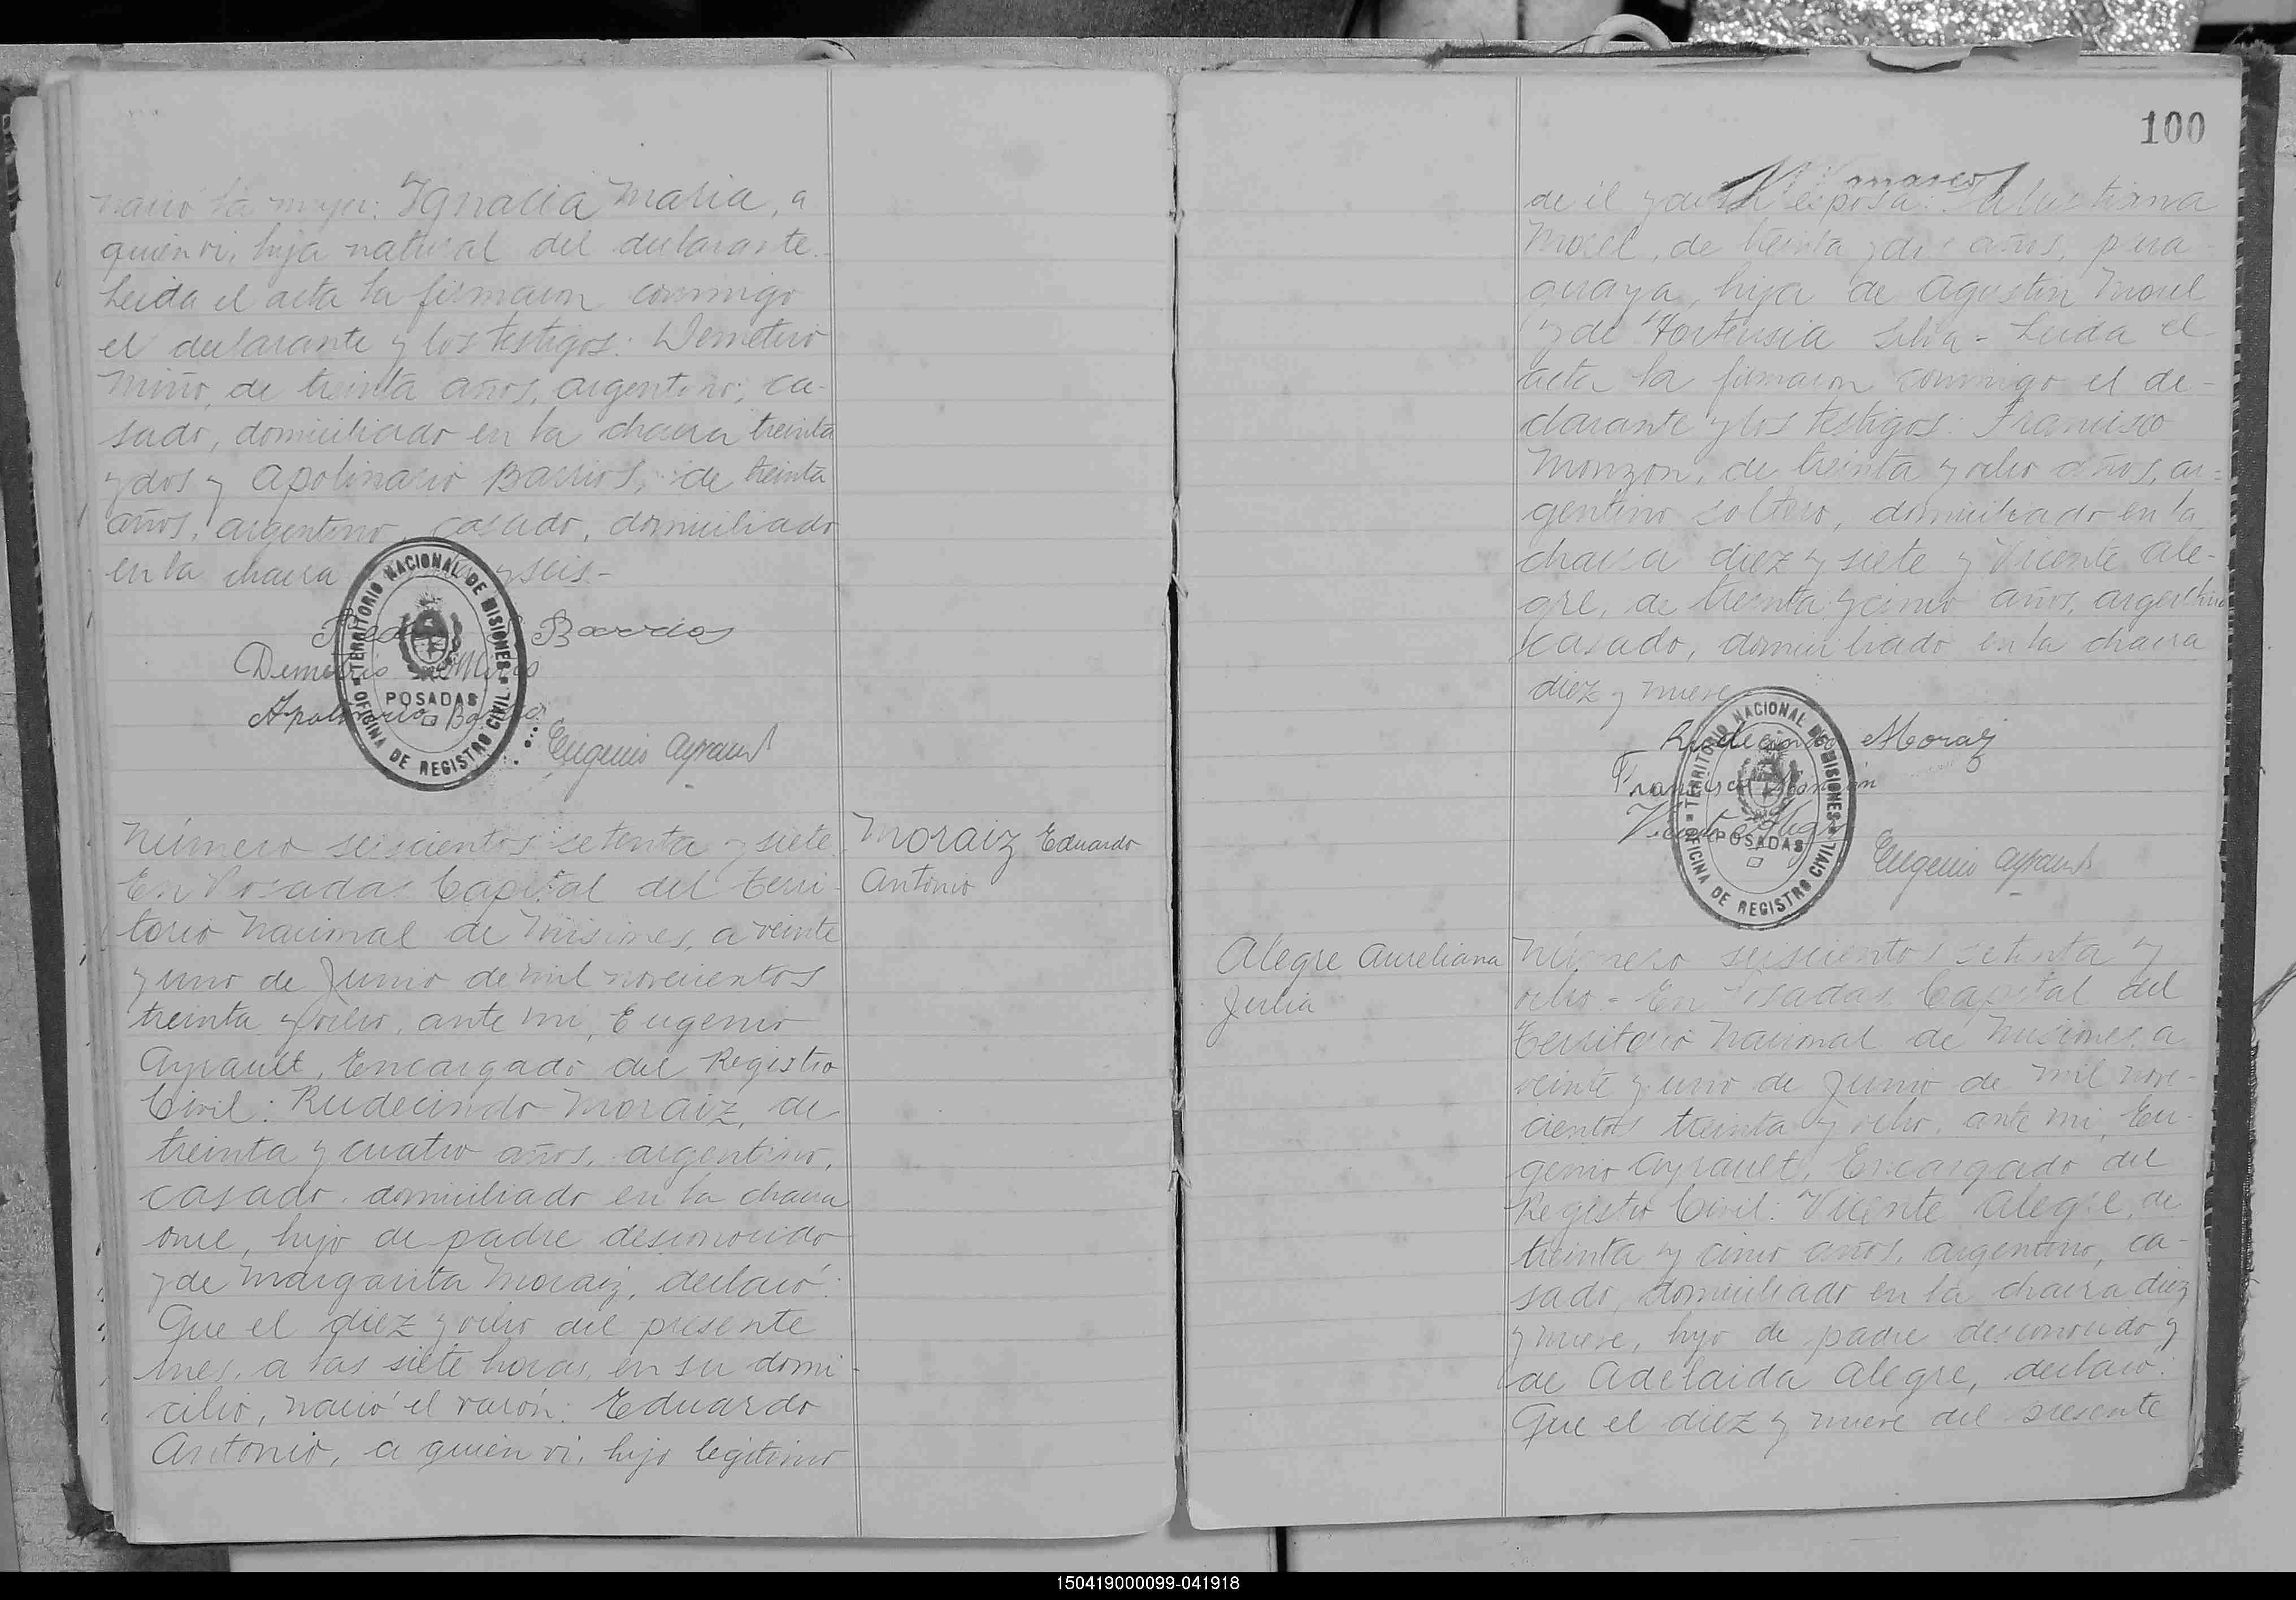 nació la mujer: Ignacia Maria, a
quien vi, hija natural del declarante.
Leida el acta la firmaron conmigo
el declarante y los testigos: Demetrio
Miño, de treinta años, argentino, ca-
sado, domiciliado en la chacra treinta
y dos y Apolinario Barrios, de treinta
años, argentino, casado, domiciliado
en la chacra y seis.-
Barrios
Demetrio Miño
Apolinario Barrios
Eugenio Ayrault
TERRITORIO NACIONAL DE MISIONES
POSADAS
OFICINA DE REGISTRO CIVIL
Número seiscientos setenta y siete
En Posadas Capital del Terri-
torio Nacional de Misiones, a veinte
y uno de Junio de mil novecientos
treinta y ocho, ante mi, Eugenio
Ayrault, Encargado del Registro
Civil: Rudecindo Moraiz, de
treinta y cuatro años, argentino,
casado, domiciliado en la chacra
once, hijo de padre desconocido
y de Margarita Moraiz, declaró:
Que el diez y ocho del presente
mes, a las siete horas, en su domi-
cilio, nació el varón: Eduardo
Antonio, a quien vi, hijo legitimo
Moraiz Eduardo
Antonio
100
de él y de su esposa:
Morel, de treinta y dos años, para-
guaya, hija de Agustin Morel
y de Hortensia Silva - Leida el
acta la firmaron conmigo el de-
clarante y los testigos: Francisco
Monzon, de treinta y ocho años, ar-
gentino soltero, domiciliado en la
chacra diez y siete y Vicente Ale-
gre, de treinta y cinco años, argentino
casado, domiciliado en la chacra
diez y nueve
Rudecindo Moraiz
Francisco Monzon
Vicente Alegre
Eugenio Ayrault
TERRITORIO NACIONAL DE MISIONES
POSADAS
OFICINA DE REGISTRO CIVIL
Alegre Aureliana
Julia
Número seiscientos setenta y
ocho - En Posadas Capital del
Territorio Nacional de Misiones, a
veinte y uno de Junio de mil nove-
cientos treinta y ocho, ante mi, Eu-
genio Ayrault, Encargado del
Registro Civil: Vicente Alegre, de
treinta y cinco años, argentino, ca-
sado, domiciliado en la chacra diez
y nueve, hijo de padre desconocido y
de Adelaida Alegre, declaró:
Que el diez y nueve del presente
150419000099-041918